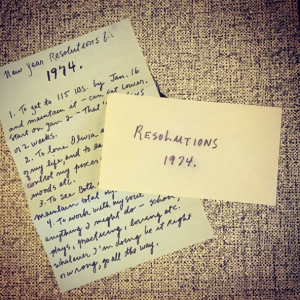 New Year Resolutions for
1974.
1. To get to 115 lbs. by Jan. 16
and maintain it – can get lower.
start on Jan 2 – That gives
2 weeks.
2. To love Olivia
of my life, and to
control my
moods etc.
3. To see Beth
maintain total
4. To work with my
anything I might do – school,
plays, practicing, loving etc.
whatever I'm doing be it right
or wrong, go all the way.
RESOLUTIONS
1974.